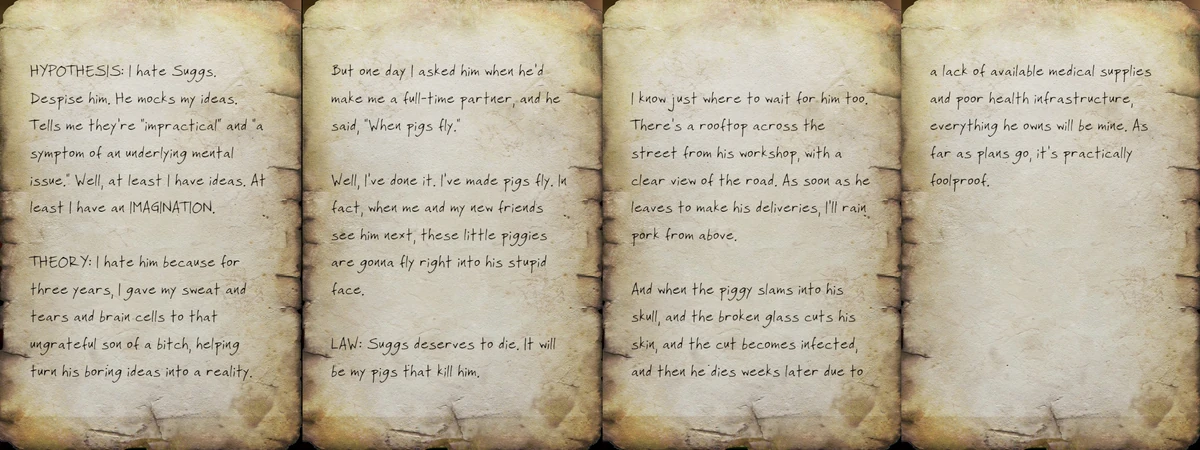 HYPOTHESIS: I hate Suggs.
Despise him. He mocks my ideas.
Tells me they're "impractical" and "a
symptom of an underlying mental
issue." Well, at least I have ideas. At
least I have an IMAGINATION.
THEORY: I hate him because for
three years, I gave my sweat and
tears and brain cells to that
ungrateful son of a bitch, helping
turn his boring ideas into a reality.
But one day I asked him when he'd
make me a full-time partner, and he
said, "When pigs fly."
Well, I've done it. I've made pigs fly. In
fact, when me and my new friends
see him next, these little piggies
are gonna fly right into his stupid
face.
LAW: Suggs deserves to die. It will
be my pigs that kill him.
I know just where to wait for him too.
There's a rooftop across the
street from his workshop, with a
clear view of the road. As soon as he
leaves to make his deliveries, I'll rain
pork from above.
And when the piggy slams into his
skull, and the broken glass cuts his
skin, and the cut becomes infected,
and then he dies weeks later due to
a lack of available medical supplies
and poor health infrastructure,
everything he owns will be mine. As
far as plans go, it's practically
foolproof.